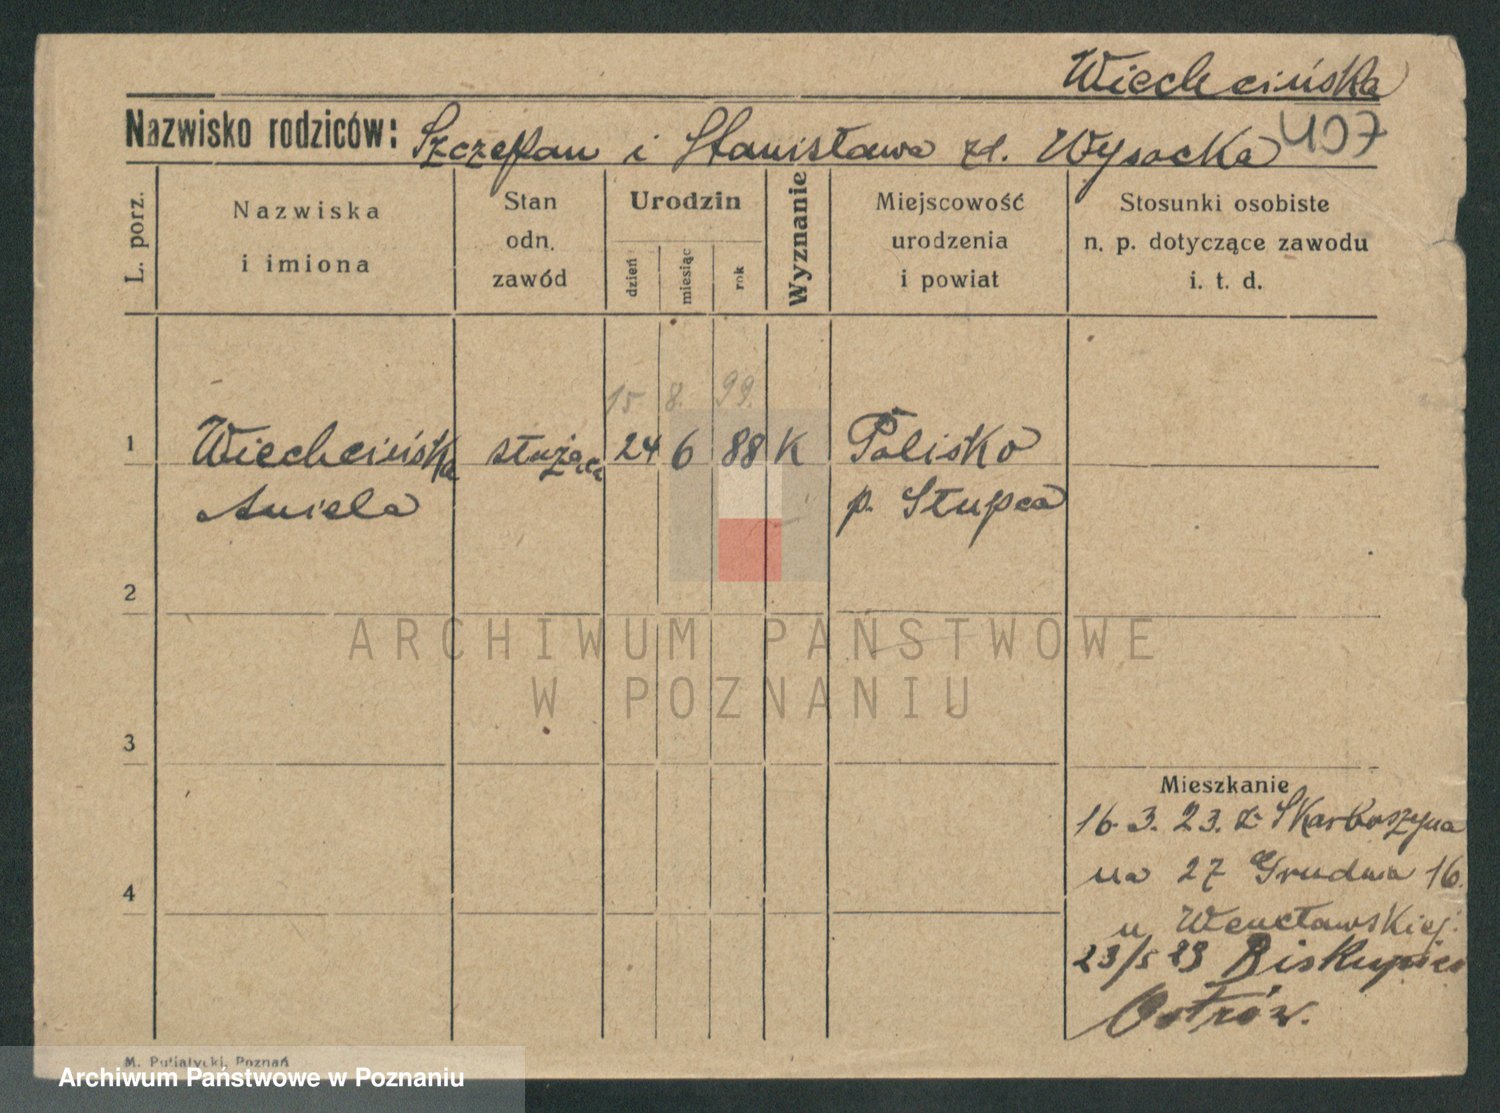 Wiechcińska
Nazwisko rodziców: Szczepan i Stanisława zd. Wysocka 407
L. porz.
Nazwiska
i imiona
Stan
odn.
zawód
Urodzin
dzień
miesiąc
rok
Wyznanie
Miejscowość
urodzenia
i powiat
Stosunki osobiste
n. p. dotyczące zawodu
i. t. d.
15 8. 99.
1 Wiechcińska służąca 24 6 88 K Polisko
Aniela p. Słupca
2
ARCHIWUM PAŃSTWOWE
W POZNANIU
3
Mieszkanie
16. 3. 23. z Skarboszewa
na 27 Grudnia 16.
4
u Wencławskiej.
23/5 23 Biskupice
Ostrów.
M. Putiatycki, Poznań
Archiwum Państwowe w Poznaniu